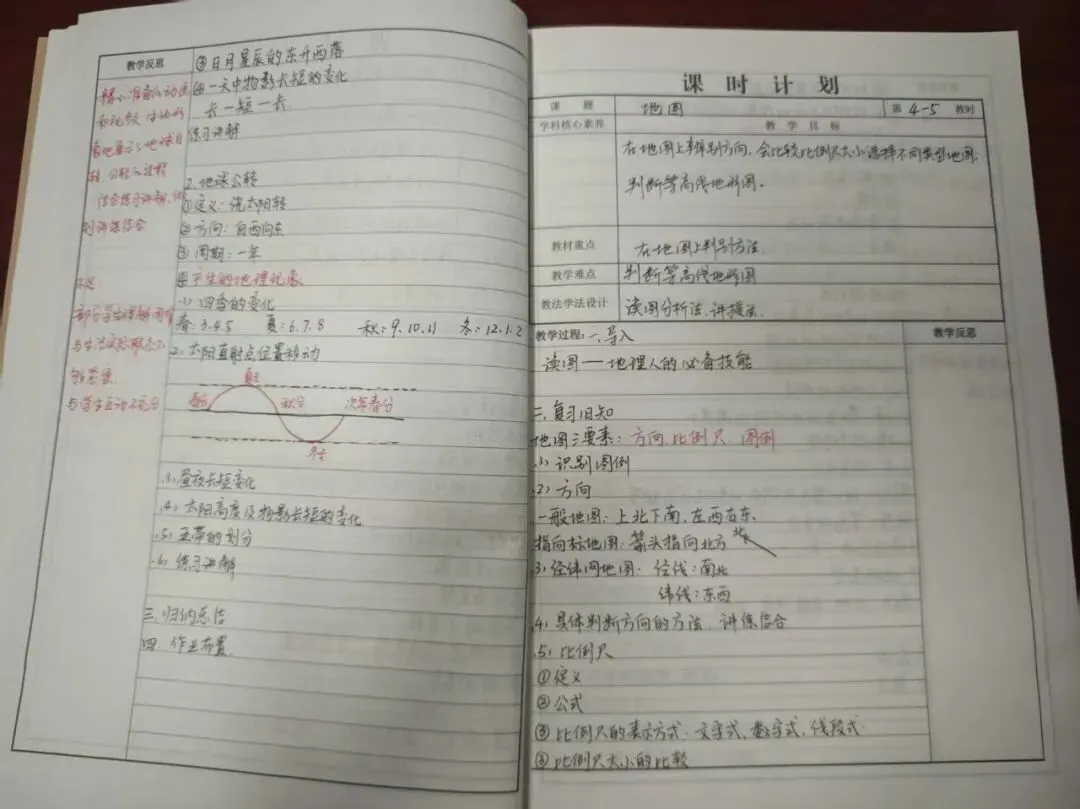 教学反思
精心准备了动画
和视频
结合练习讲解
不足：
③日月星辰的东升西落
④一天中物影长短的变化
长一短一长
练习讲解
2. 地球公转
①定义：绕太阳转
②方向：自西向东
③周期：一年
④产生的地理现象
(1) 四季的变化
春：3.4.5 夏：6.7.8 秋：9.10.11 冬：12.1.2
(2) 太阳直射点位置移动
夏至
春分 秋分 次年春分
冬至
(3) 昼夜长短变化
(4) 太阳高度及物影长短的变化
(5) 五带的划分
(6) 练习讲解
三. 归纳总结
四. 作业布置
课时计划
课题 地图 第 4-5 教时
学科核心素养 教学目标
在地图上辨别方向，会比较比例尺大小选择不同类型地图；
判断等高线地形图。
教材重点 在地图上判别方法.
教学难点 判断等高线地形图
教法学法设计 读图分析法.讲授法.
教学过程：一.导入 教学反思
读图——地理人的必备技能
二.复习旧知
地图三要素：方向.比例尺.图例
(1) 识别图例
(2) 方向
一般地图：上北下南.左西右东.
指向标地图：箭头指向北方 北
(3) 经纬网地图：经线：南北
纬线：东西
(4) 具体判断方向的方法.讲练结合
(5) 比例尺
①定义
②公式
③比例尺的表示方式：文字式.数字式.线段式.
③比例尺大小的比较